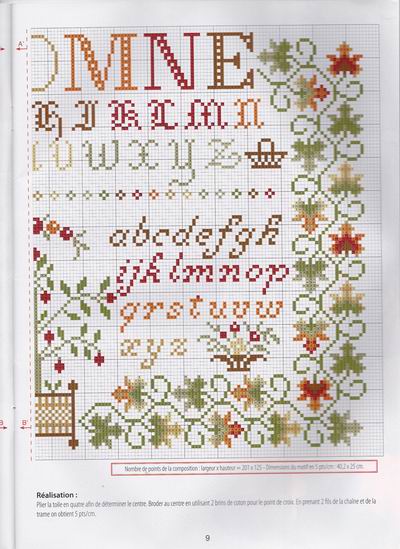 A'
OMNE
H I K L M N
U W X Y Z
abcdefgh
ijklmnop
qrstuvw
xyz
B B'
Nombre de points de la composition : largeur x hauteur = 201 x 125 - Dimensions du motif en 5 pts/cm : 40,2 x 25 cm.
Réalisation :
Plier la toile en quatre afin de déterminer le centre. Broder au centre en utilisant 2 brins de coton pour le point de croix. En prenant 2 fils de la chaîne et de la
trame on obtient 5 pts/cm.
9